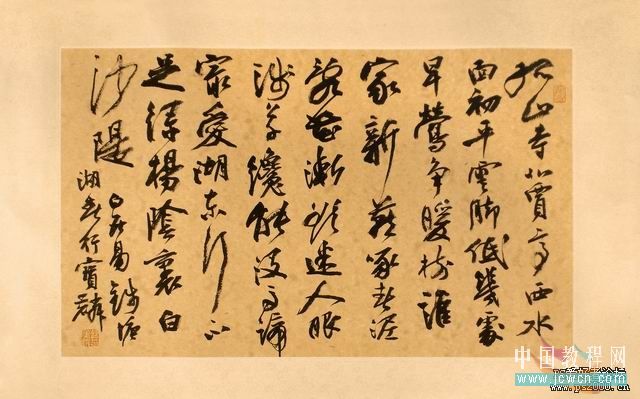 孤山寺北賈亭西水
面初平雲脚低幾處
早鶯争暖樹誰
家新燕啄春泥
亂花漸欲迷人眼
浅草纔能没馬蹄
最愛湖東行不
足緑楊陰裏白
沙隄
白居易錢塘
湖春行寶麟
中国教程网
www.jcwcn.com
www.ps2000.cn